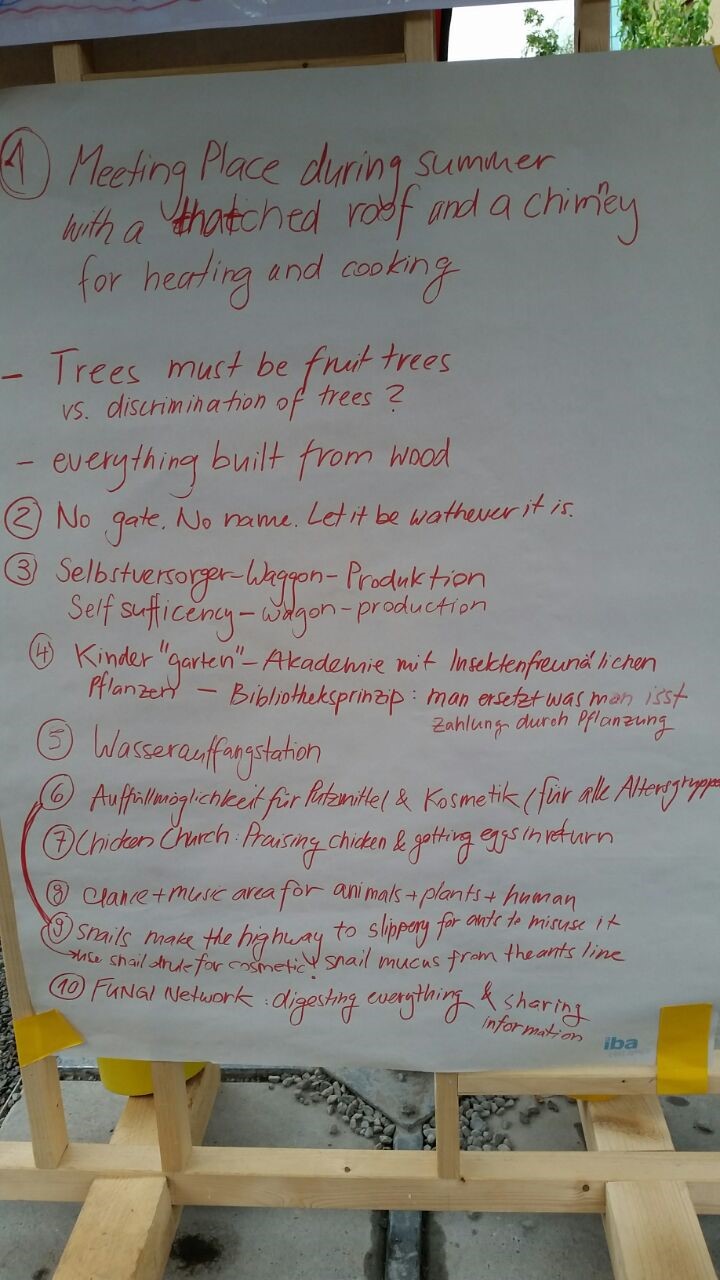 1 Meeting Place during summer
with a thatched roof and a chimney
for heating and cooking
- Trees must be fruit trees
vs. discrimination of trees?
- everything built from wood
2 No gate. No name. Let it be wathever it is.
3 Selbstversorger-Waggon-Produktion
Self sufficency - wagon - production
4 Kinder "garten" - Akademie mit Insektenfreundlichen
Pflanzen - Bibliotheksprinzip: man ersetzt was man isst
Zahlung durch Pflanzung
5 Wasserauffangstation
6 Auffüllmöglichkeit für Putzmittel & Kosmetik (für alle Altersgruppe
7 Chicken Church: Praising chicken & getting eggs in return
8 dance + music area for animals + plants + human
9 Snails make the highway to slippery for ants to misuse it
use snail for cosmetic! snail mucus from the ants line
10 FUNGI Network: digesting everything & sharing
information
iba